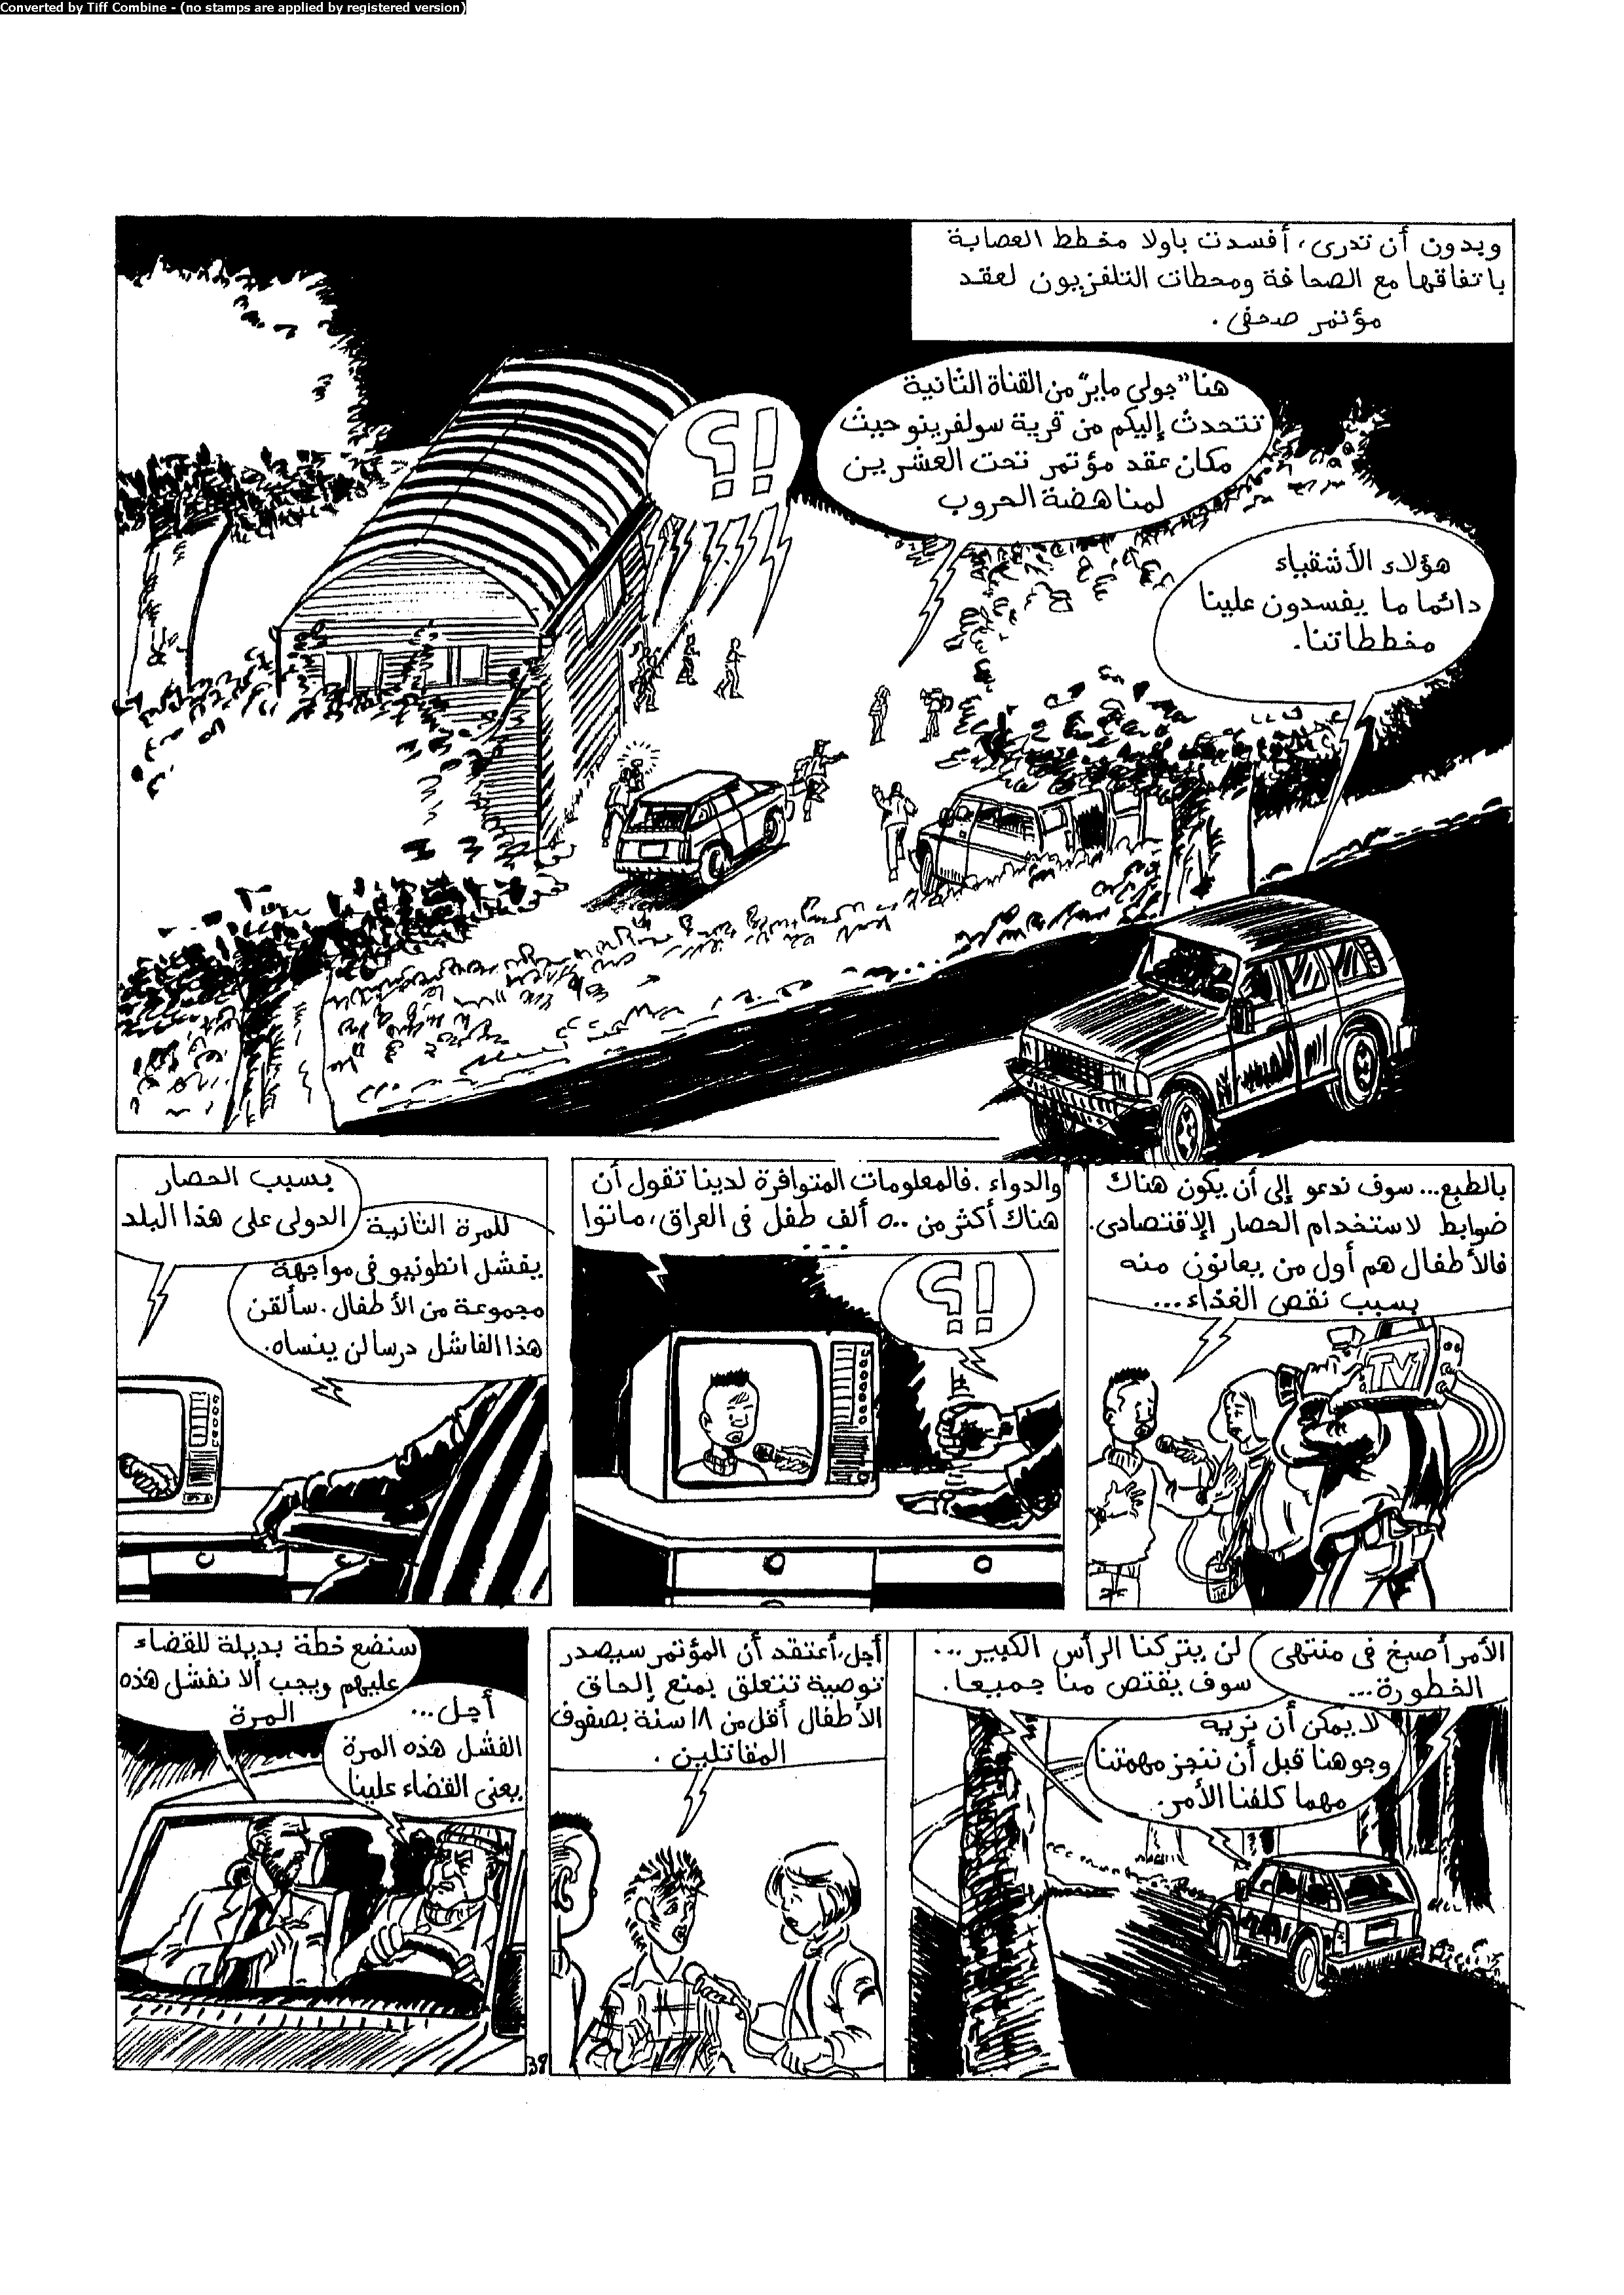 Converted by Tiff Combine - (no stamps are applied by registered version)
وبدون أن تدرى، أفسدت باولا مخطط العصابة
باتفاقها مع الصحافة ومحطات التلفزيون لعقد
مؤتمر صحفى.
هنا "جولى ماير" من القناة الثانية
تتحدث إليكم من قرية سولفرينو حيث
مكان عقد مؤتمر تحت العشرين
لمناهضة الحروب
؟!
هؤلاء الأشقياء
دائما ما يفسدون علينا
مخططاتنا.
بالطبع... سوف ندعو إلى أن يكون هناك
ضوابط لاستخدام الحصار الإقتصادى.
فالأطفال هم أول من يعانون منه
بسبب نقص الغذاء...
TV1
والدواء. فالمعلومات المتوافرة لدينا تقول أن
هناك أكثر من ٥٠٠ ألف طفل فى العراق، ماتوا
...
؟!
بسبب الحصار
الدولى على هذا البلد
للمرة الثانية
يفشل انطونيو فى مواجهة
مجموعة من الأطفال. سألقن
هذا الفاشل درسا لن ينساه.
الأمر أصبغ فى منتهى
الخطورة...
لن يتركنا الرأس الكبير...
سوف يقتص منا جميعا.
لا يمكن أن نريه
وجوهنا قبل أن ننجز مهمتنا
مهما كلفنا الأمر.
أجل، أعتقد أن المؤتمر سيصدر
توصية تتعلق بمنع إلحاق
الأطفال أقل من ١٨ سنة بصفوف
المقاتلين.
سنضع خطة بديلة للقضاء
عليهم ويجب ألا نفشل هذه
المرة
أجل...
الفشل هذه المرة
يعنى القضاء علينا
38